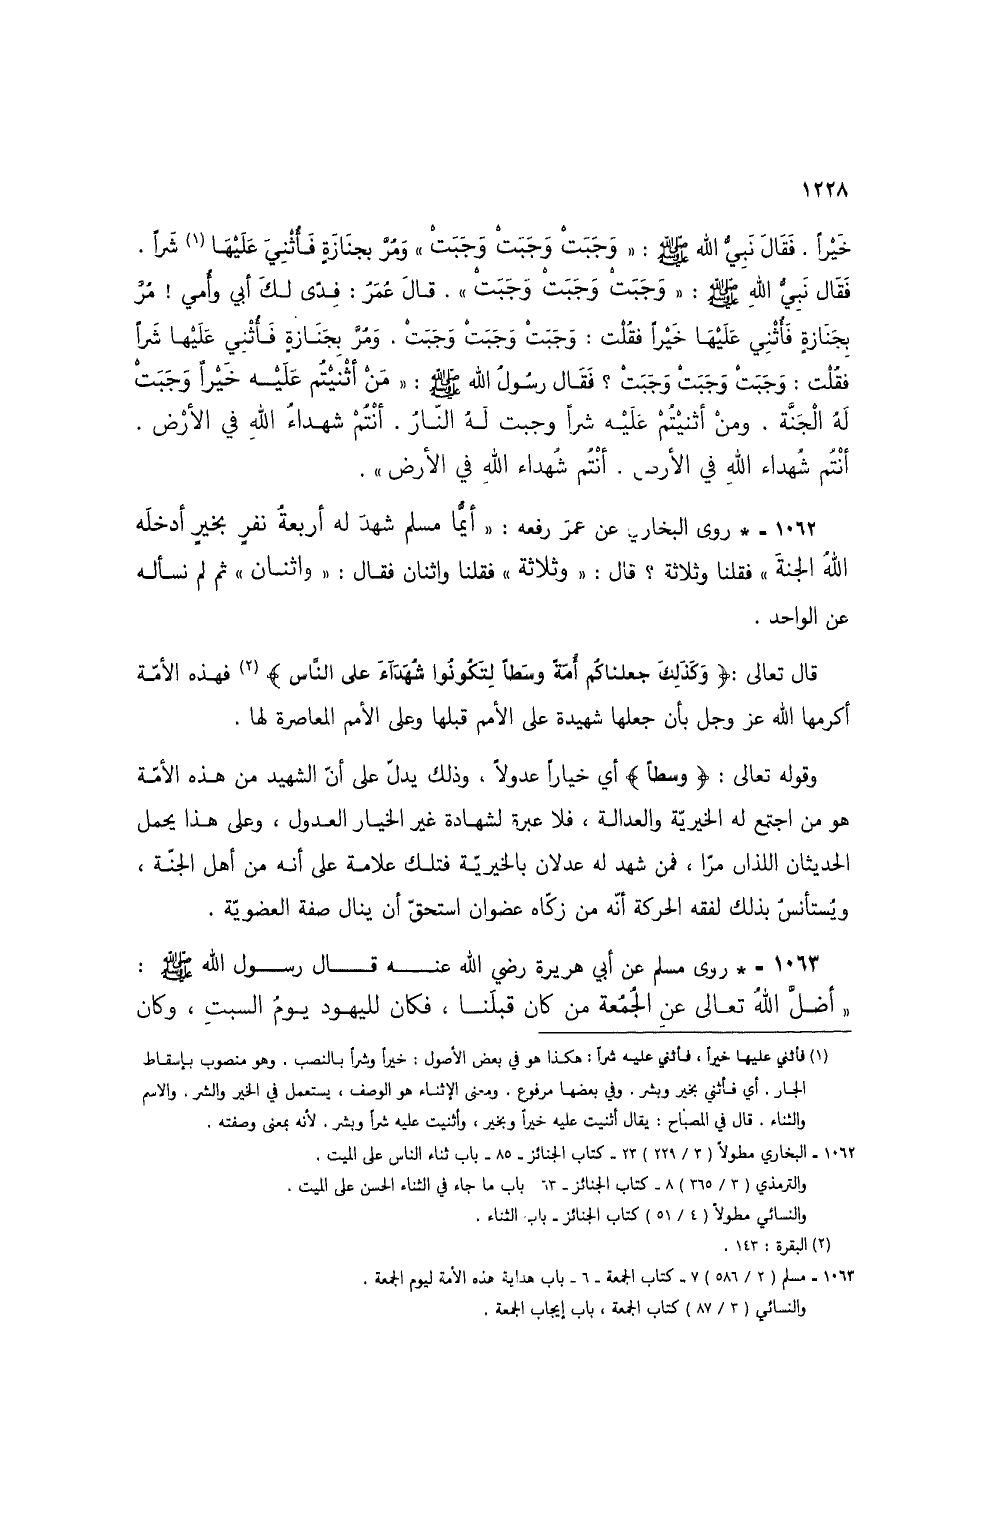 ١٢٢٨
خَيْراً . فَقَالَ نَبِيُّ الله ﷺ : « وَجَبَتْ وَجَبَتْ وَجَبَتْ » وَمُرَّ بجنَازَةٍ فَأُثْنِيَ عَلَيْهَا (١) شَراً .
فَقَال نَبِيُّ اللهِ ﷺ : « وَجَبَتْ وَجَبَتْ وَجَبَتْ » . قالَ عُمَرُ : فِدًى لكَ أبي وأُمي ! مُرَّ
بِجنَازةٍ فَأُثْنِي عَلَيْهَا خَيْراً فقلُت : وَجَبَتْ وَجَبَتْ وَجَبَتْ . وَمُرَّ بِجَنَازةٍ فَأُثْنِي عَلَيْها شَراً
فقُلْت : وَجَبَتْ وَجَبَتْ وَجَبَتْ ؟ فَقَال رسُولُ الله ﷺ : « مَنْ أثْنيْتُم عَلَيْه خَيْراً وَجَبَتْ
لَهُ الْجَنَّة . ومنْ أثنيْتُمْ عَلَيْه شراً وجبت لَهُ النّارُ . أنْتُمْ شهداءُ اللهِ في الأرْض .
أنْتُم شُهداء اللهِ في الأرض . أنْتُم شُهداء اللهِ في الأرض » .
١٠٦٢ - * روى البخاري عن عمرَ رفعه : « أيمَّا مسلم شهدَ له أربعةُ نفرٍ بخيرٍ أدخلَه
اللهُ الجنةَ » فقلنا وثلاثة ؟ قال : « وثلاثة » فقلنا واثنان فقال : « واثنان » ثم لم نسأله
عن الواحد .
قال تعالى :﴿ وَكَذَلِكَ جعلناكُم أُمَةً وسَطاً لِتَكُونُوا شُهَدَآءَ على النَّاس ﴾ (٢) فهذه الأمّة
أكرمها الله عز وجل بأن جعلها شهيدة على الأمم قبلها وعلى الأمم المعاصرة لها .
وقوله تعالى : ﴿ وسطاً ﴾ أي خياراً عدولاً ، وذلك يدلّ على أنّ الشهيد من هذه الأمّة
هو من اجتمع له الخيريّة والعدالة ، فلا عبرة لشهادة غير الخيار العدول ، وعلى هذا يحمل
الحديثان اللذان مرّا ، فمن شهد له عدلان بالخيريّة فتلك علامة على أنه من أهل الجنّة ،
ويُستأنسُ بذلك لفقه الحركة أنّه من زكّاه عضوان استحقّ أن ينال صفة العضويّة .
١٠٦٣ - * روى مسلم عن أبي هريرة رضي الله عنه قال رسول الله ﷺ :
« أضلَّ اللهُ تعالى عنِ الجُمُعة من كان قبلَنا ، فكان لليهود يومُ السبتِ ، وكان
(١) فأثني عليها خيراً ، فأثني عليه شراً : هكذا هو في بعض الأصول : خيراً وشراً بالنصب . وهو منصوب بإسقاط
الجار . أي فأثني بخير وبشر . وفي بعضها مرفوع . ومعنى الإثناء هو الوصف ، يستعمل في الخير والشر . والاسم
والثناء . قال في المصباح : يقال أثنيت عليه خيراً وبخير ، وأثنيت عليه شراً وبشر . لأنه بمعنى وصفته .
١٠٦٢ - البخاري مطولاً ( ٣ / ٢٢٩ ) ٢٣ - كتاب الجنائز - ٨٥ - باب ثناء الناس على الميت .
والترمذي ( ٣ / ٣٦٥ ) ٨ - كتاب الجنائز - ٦٣ باب ما جاء في الثناء الحسن على الميت .
والنسائي مطولاً ( ٤ / ٥١ ) كتاب الجنائز - باب الثناء .
(٢) البقرة : ١٤٣ .
١٠٦٣ - مسلم ( ٢ / ٥٨٦ ) ٧ - كتاب الجمعة - ٦ - باب هداية هذه الأمة ليوم الجمعة .
والنسائي ( ٣ / ٨٧ ) كتاب الجمعة ، باب إيجاب الجمعة .